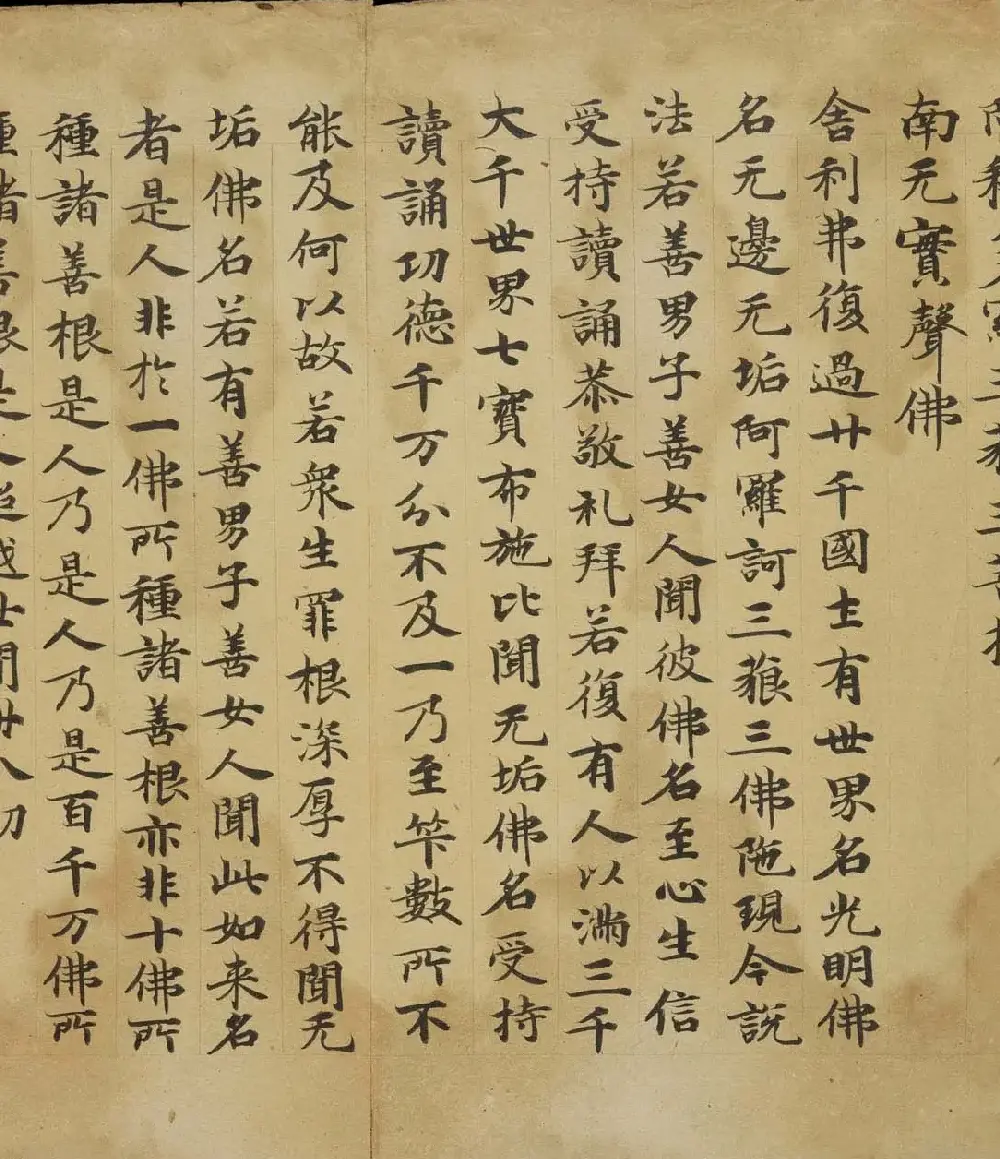 阿耨多羅三藐三菩提
南无寶聲佛
舍利弗復過廿千國土有世界名光明佛
名无邊无垢阿羅訶三藐三佛陁現今說
法若善男子善女人聞彼佛名至心生信
受持讀誦恭敬礼拜若復有人以滿三千
大千世界七寶布施比聞无垢佛名受持
讀誦功德千万分不及一乃至笇數所不
能及何以故若衆生罪根深厚不得聞无
垢佛名若有善男子善女人聞此如来名
者是人非於一佛所種諸善根亦非十佛所
種諸善根是人乃是人乃是百千万佛所
種諸善根是人超越世間卌八劫